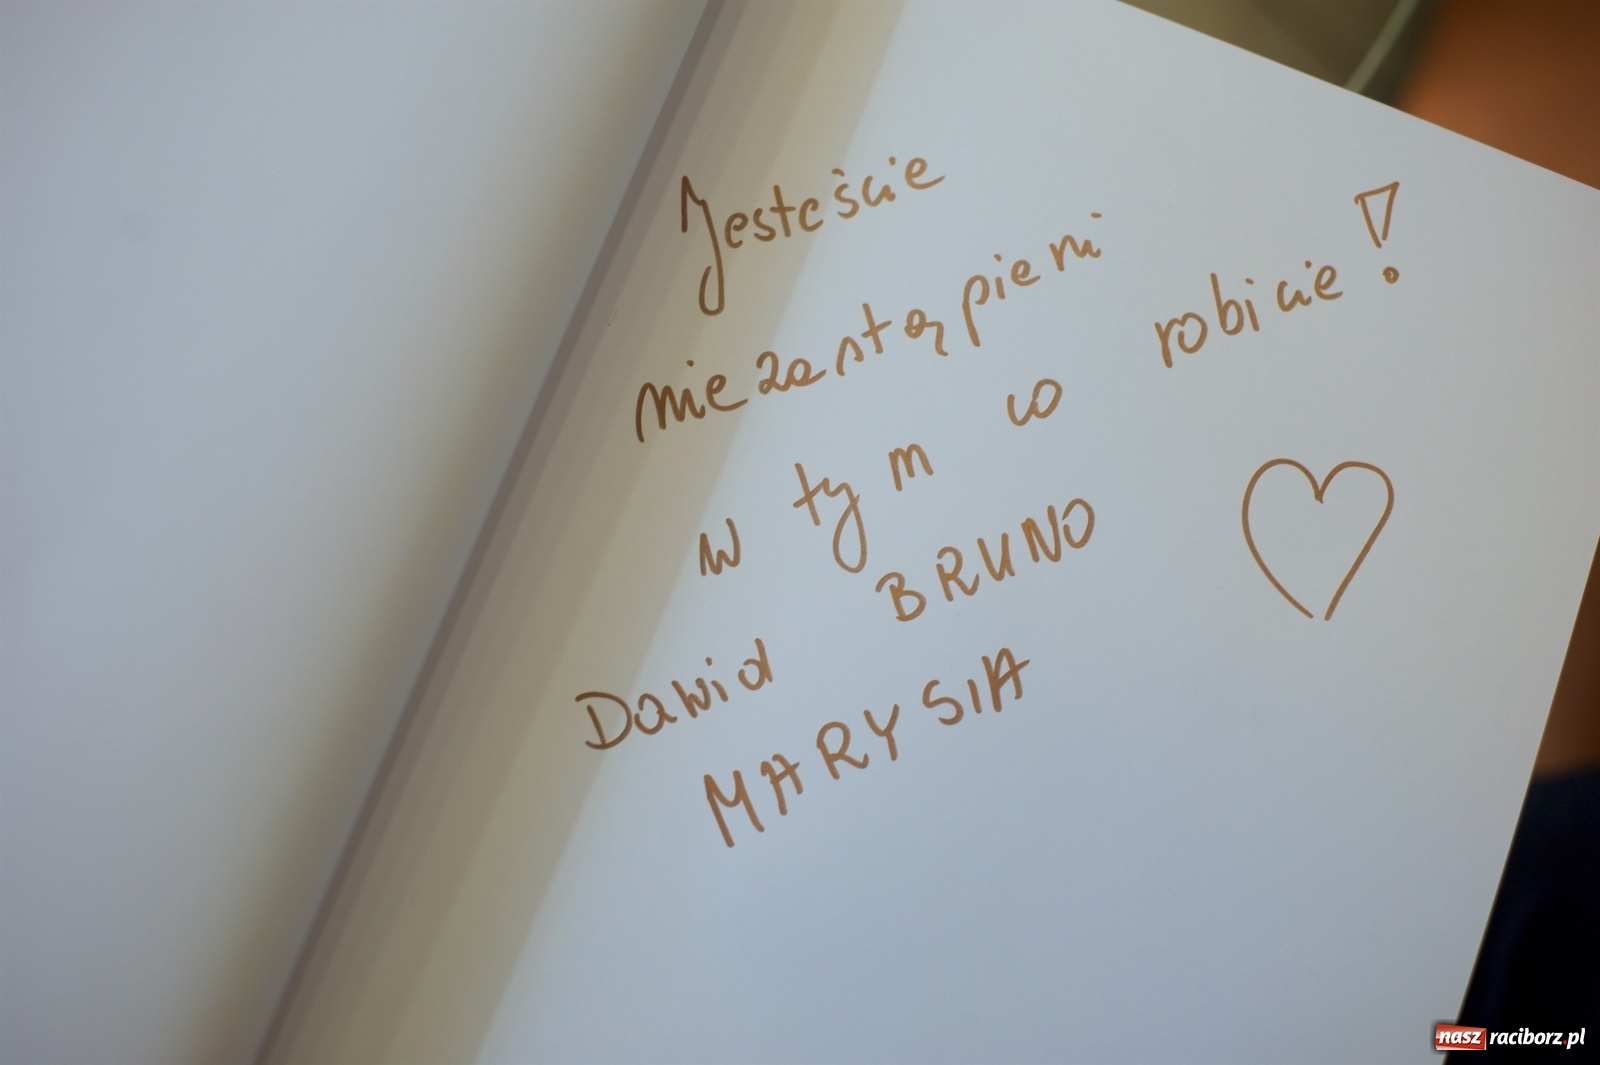 Jesteście
niezastąpieni
w tym co robicie!
Dawid BRUNO
MARYSIA
nasz raciborz.pl